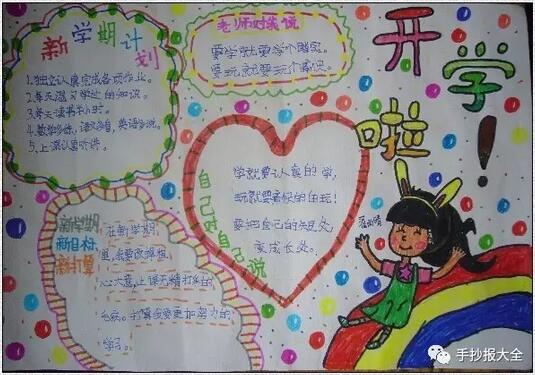 新学期计划
1.独立认真完成各项作业。
2.每天温习学过的知识。
3.每天读书半小时。
4.数学多练，语文多音，英语多说。
5.上课认真听讲。
老师对我说
要学就要学个踏实，
要玩就要玩个痛快。
开学啦！
自己对自己说
学就要认真的学，
玩就要痛快的玩！
要把自己的短处，
变成长处。
新学期
新目标
新打算
在新学期
里，我要改掉粗
心大意，上课无精打彩的
毛病。打算我要更加努力的
学习。
手抄报大全